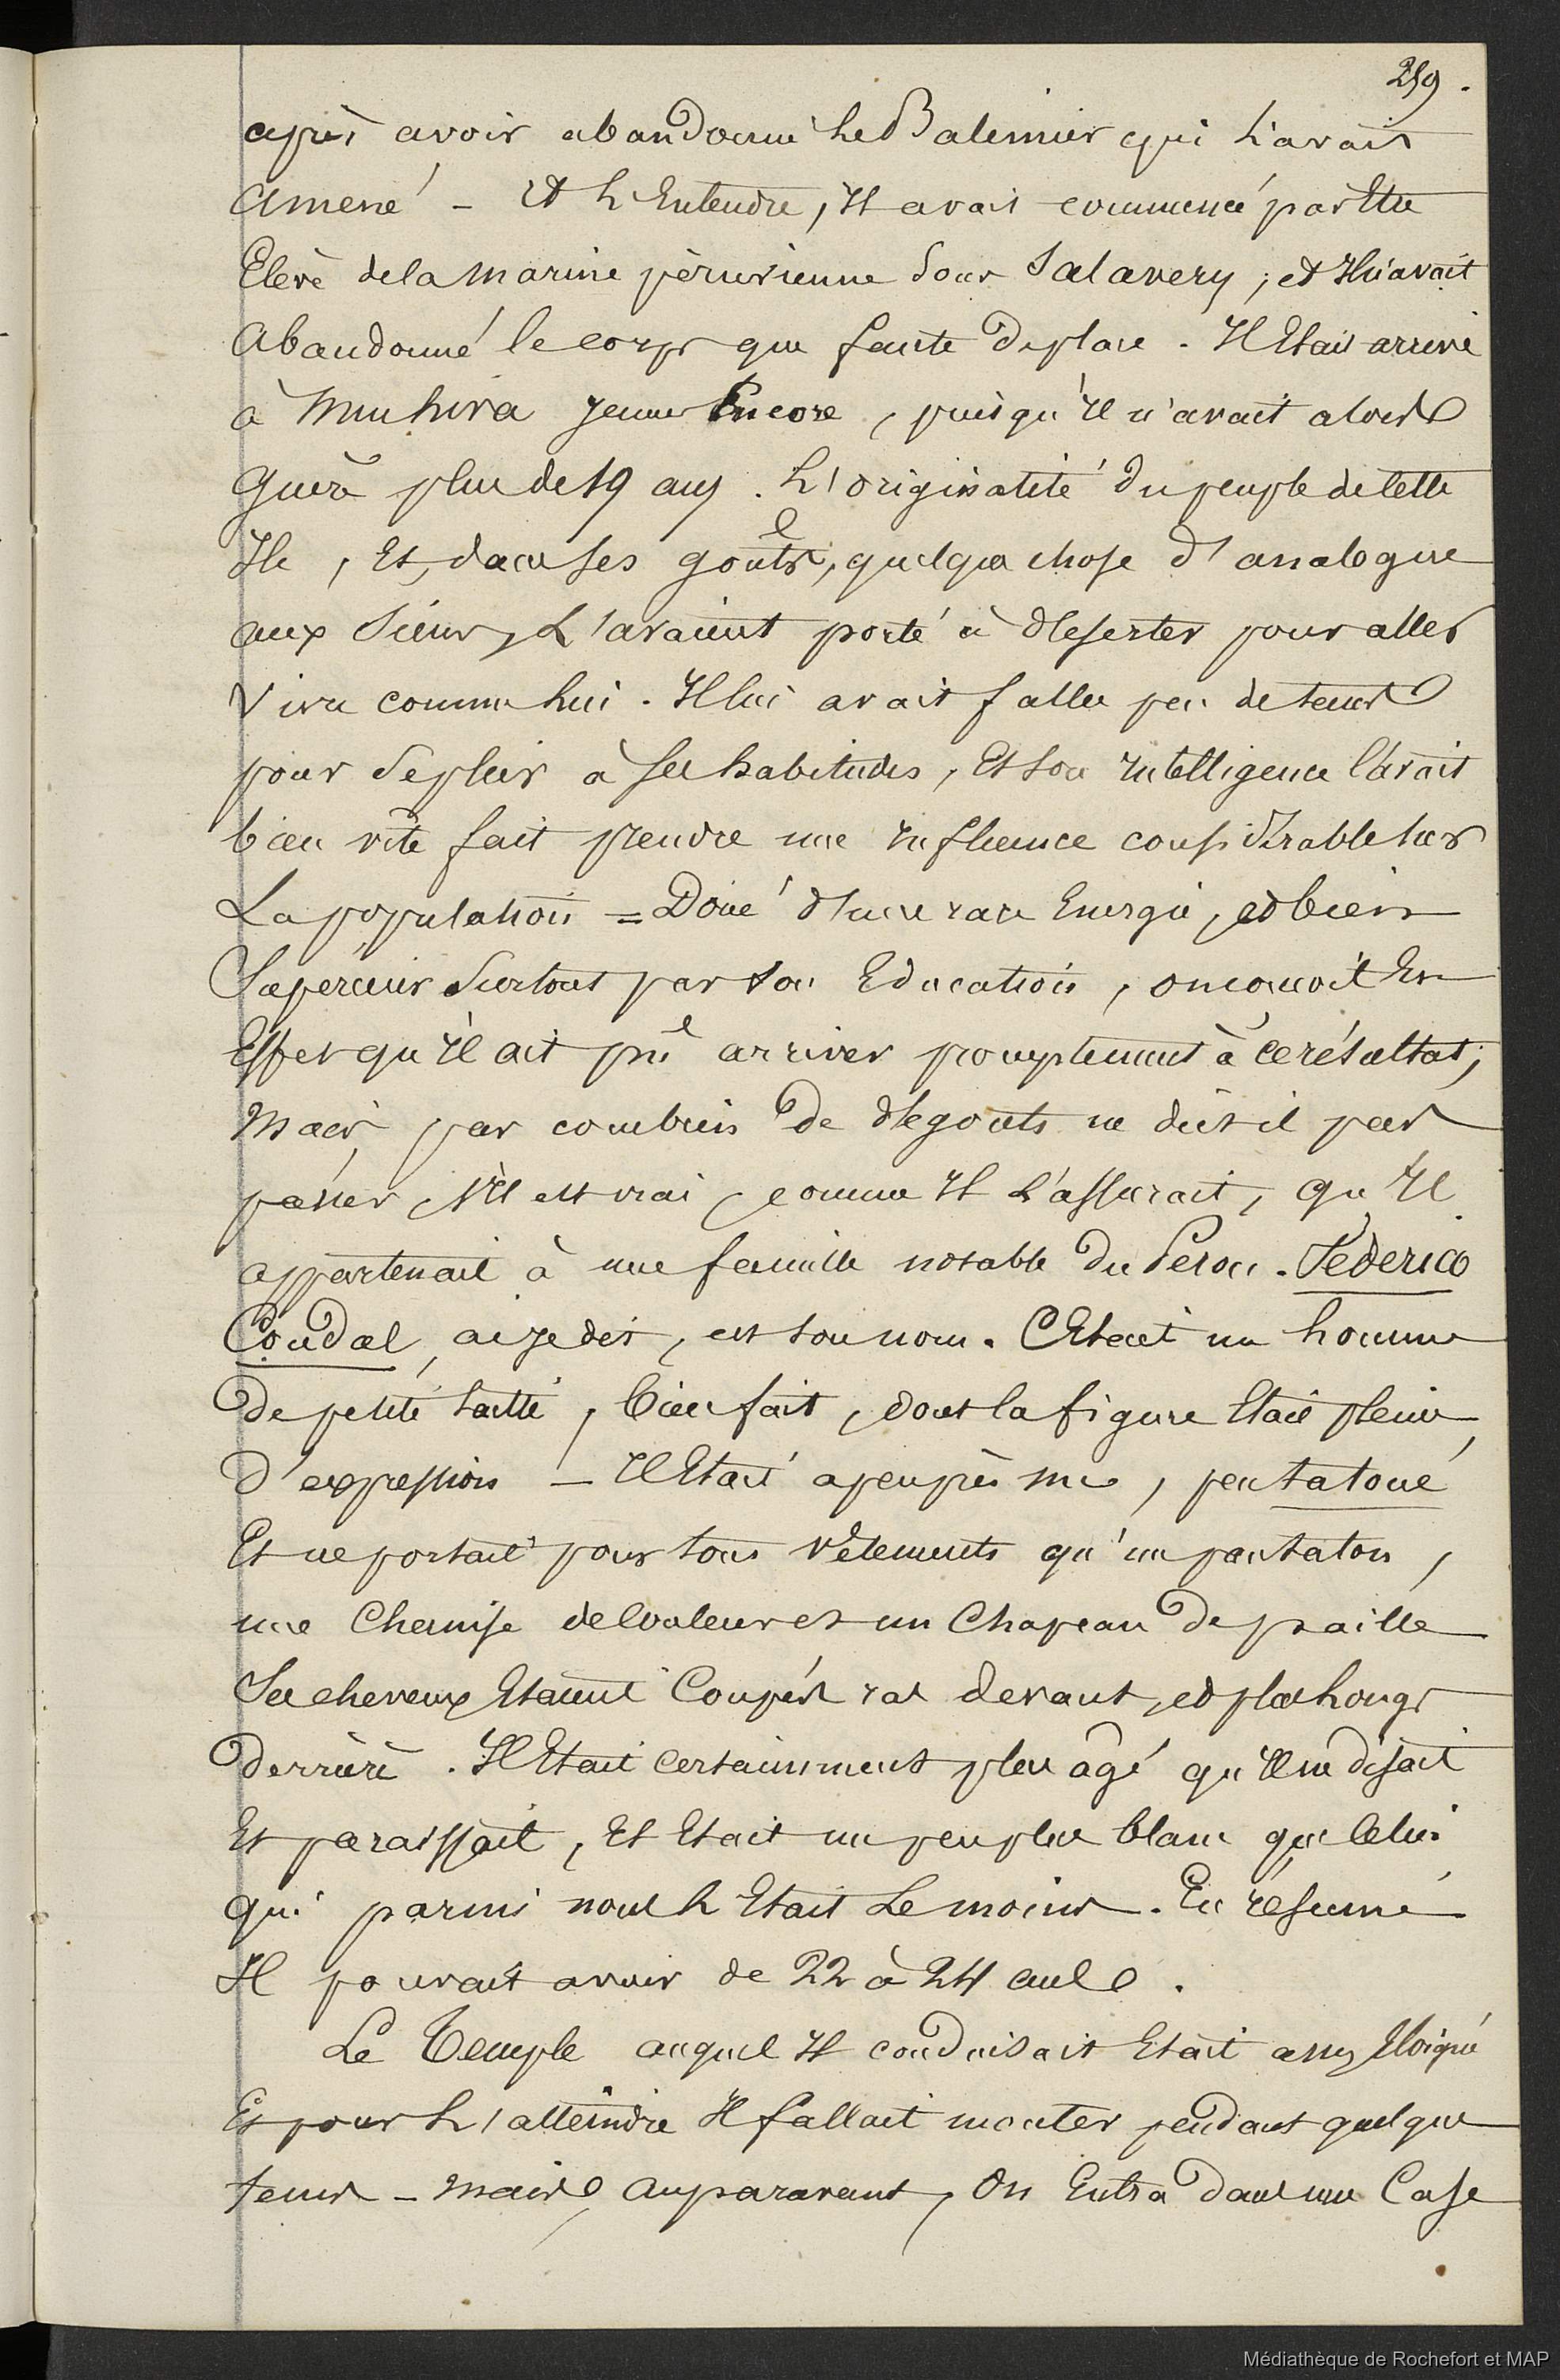 259.
après avoir abandonné Le Baleinier qui L'avait
Amené - Et L'Entendre, Il avait commencé par Etre
Elevè de la Marine pèruvienne Sous Salavery ; et Il n'avait
Abandonné le corps que faute De place . Il Etait arrivé
à Nuhiva jeune Encore , puisqu'Il n'avait alors
Guère plus de 19 ans . L'originalité Du peuple de Cette
Ile , Et, dans ses goûts, quelque chose d'analogue
aux Siens, L'avaient porté à déserter pour aller
Vivre comme Lui . Il lui avait fallu peu de tems
pour Se plier à Ses habitudes , Et Son Intelligence l'avait
bien vîte fait prendre une Influence considérable Sur
La population = Doué d'une rare Energie , et bien
Supérieur Surtout par Son Education , on conçoit En
Effet qu'Il ait pû arriver promptement à ce résultat ;
Mais, par combien De dégouts ne dût-il pas
passer, s'Il est vrai , comme Il L'assurait , qu'Il
appartenait à une famille notable Du Pérou . Féderico
Coudal, ai je dit , est son nom . C'Etait un homme
De petite taille , bien fait , dont la figure Etait pleine
D'expression - Il Etait apeuprès nu , peu tatoué
Et ne portait pour tous vêtements qu'un pantalon ,
une Chemise de Couleur et un Chapeau De paille
Ses cheveux Etaient Coupés ras devant , et plus Longs
Derrière . Il Etait Certainement plus âgé qu'Il ne disait
Et paraissait , Et Etait un peu plus blanc que Celui
qui parmi nous L'Etait Le moins . En résumé
Il pouvait avoir de 22 à 24 ans .
Le Temple auquel Il conduisait Etait assez Eloigné
Et pour L'atteindre Il fallait monter pendant quelque
tems - Mais, auparavant , On Entra Dans une Case
Médiathèque de Rochefort et MAP